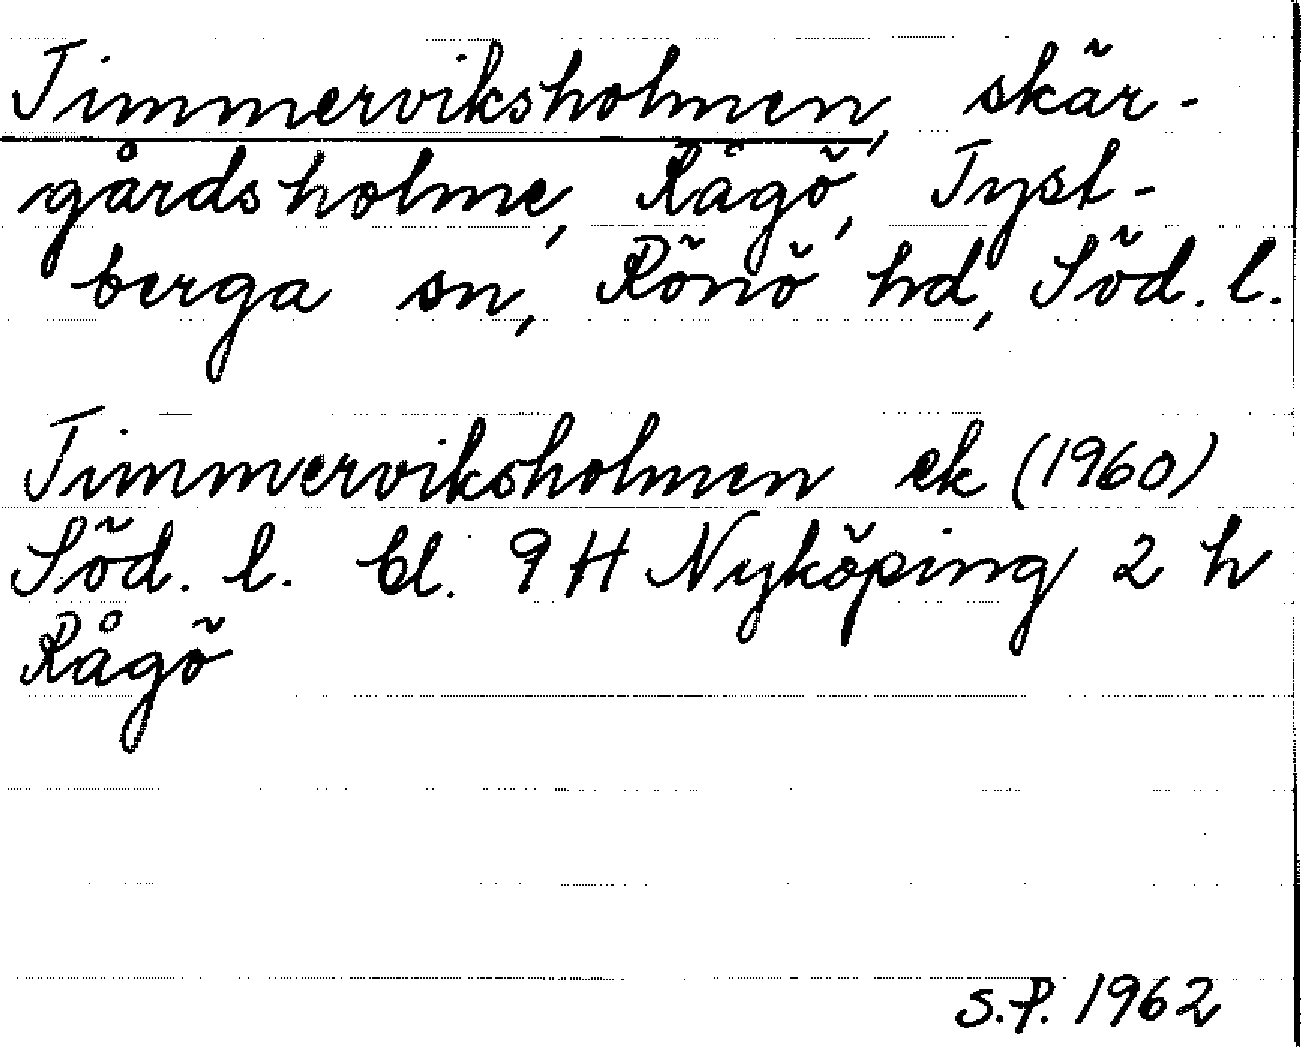 Timmerviksholmen, skär-
gårdsholme, Rågö, Tyst-
berga sn, Rönö hd, Söd. l.
Timmerviksholmen ek (1960)
Söd. l. bl. 9 H Nyköping 2 h
Rågö
S.P. 1962